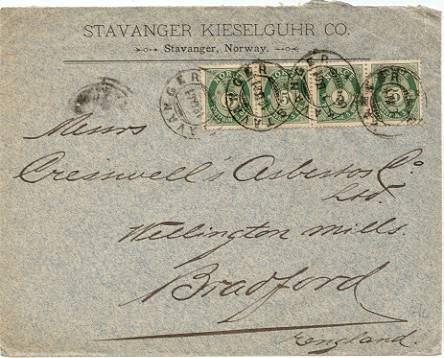 STAVANGER KIESELGUHR CO.
Stavanger, Norway.
STAVANGER
STAVANGER
STAVANGER
STAVANGER
5 5 5 5
Messrs
Cresswell's Asbestos Co.
Ltd.
Wellington Mills.
Bradford
England.